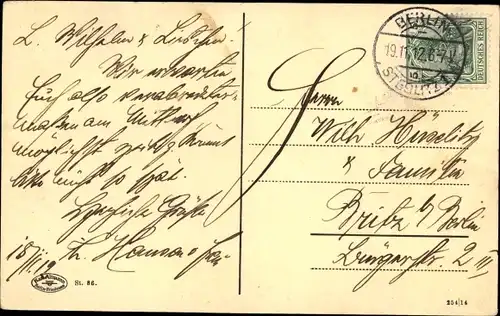 L. Wilhelm & Lieschen!
Wir erwarten
Euch also verabredeter-
maßen am Mittwoch
möglichst zeitig kommt
bitte nicht so spät.
Herzliche Grüße
Th. Hansen & Frau
18/11.12
St. 86.
BERLIN
19.11.12.6-7
STEGLITZ 1
DEUTSCHES REICH
Herrn
Wilh
& Familie
Britz b/ Berlin
Bürgerstr. 2 III
204/14